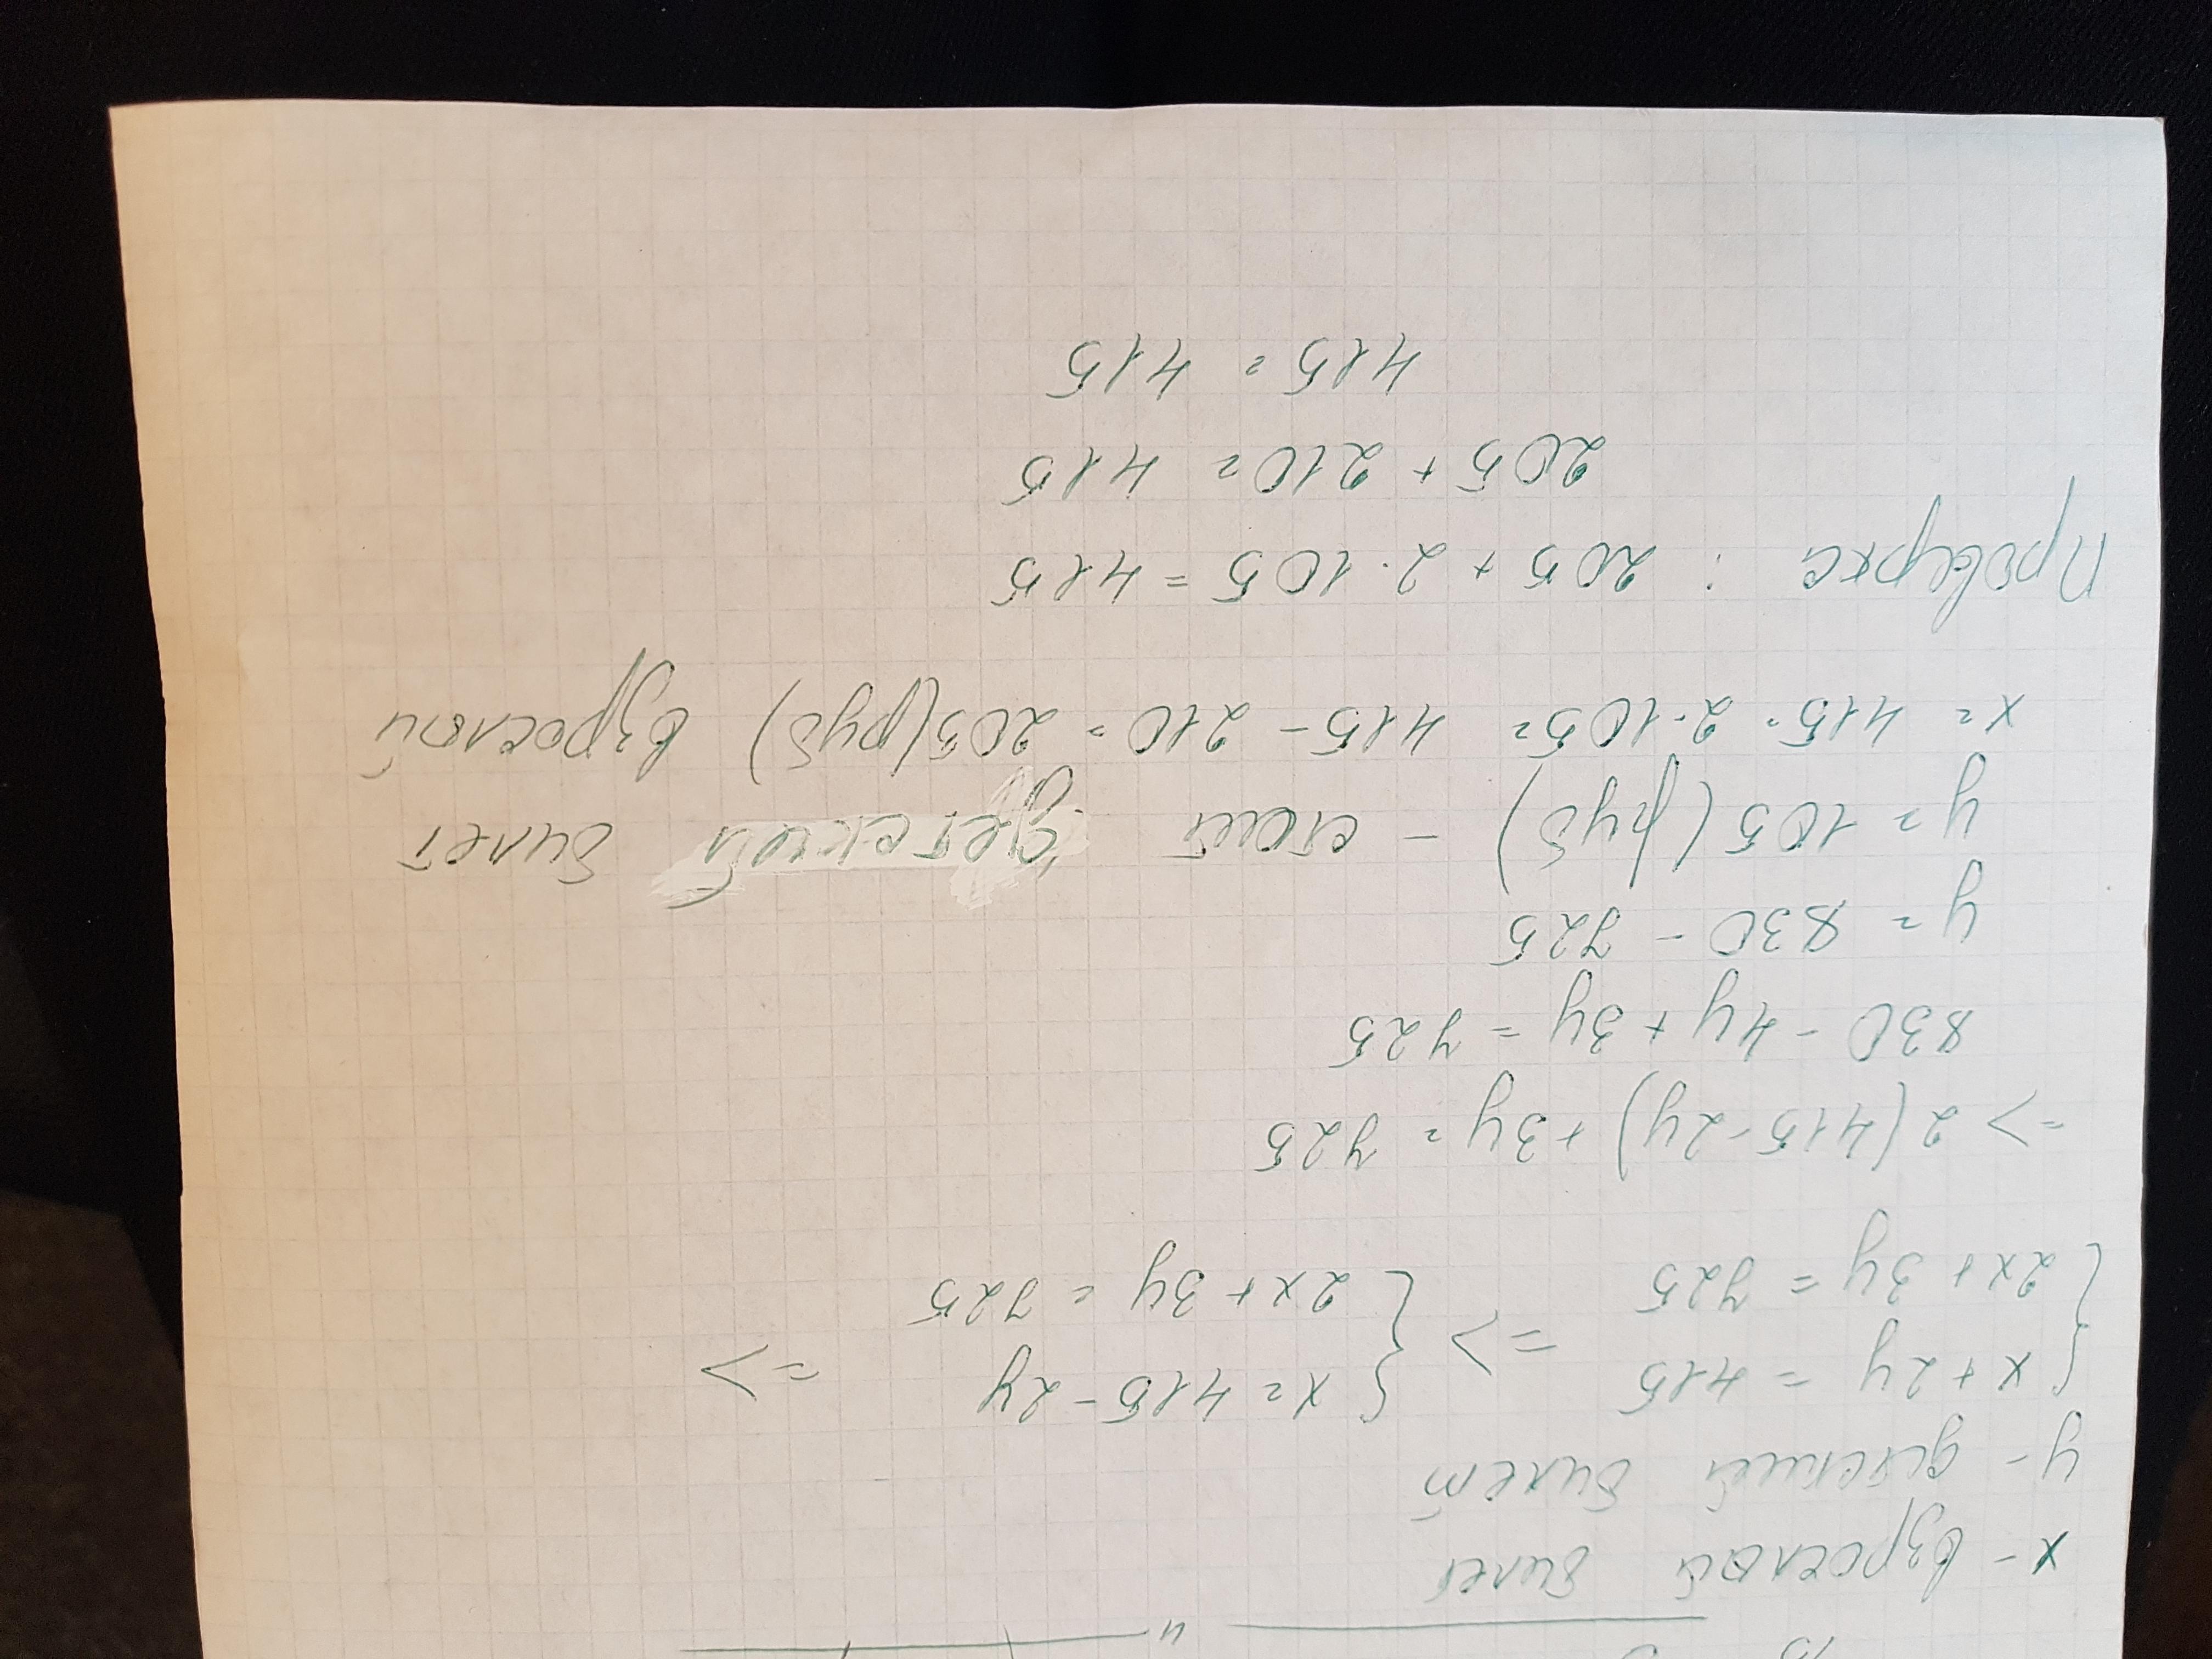 х - взрослый билет
у - детский билет
{ х + 2у = 415 => { х = 415 - 2у =>
{ 2х + 3у = 725 { 2х + 3у = 725
=> 2(415 - 2у) + 3у = 725
830 - 4у + 3у = 725
у = 830 - 725
у = 105 (руб) - стоит детский билет
х = 415 - 2·105 = 415 - 210 = 205 (руб) взрослый
Проверка : 205 + 2·105 = 415
205 + 210 = 415
415 = 415